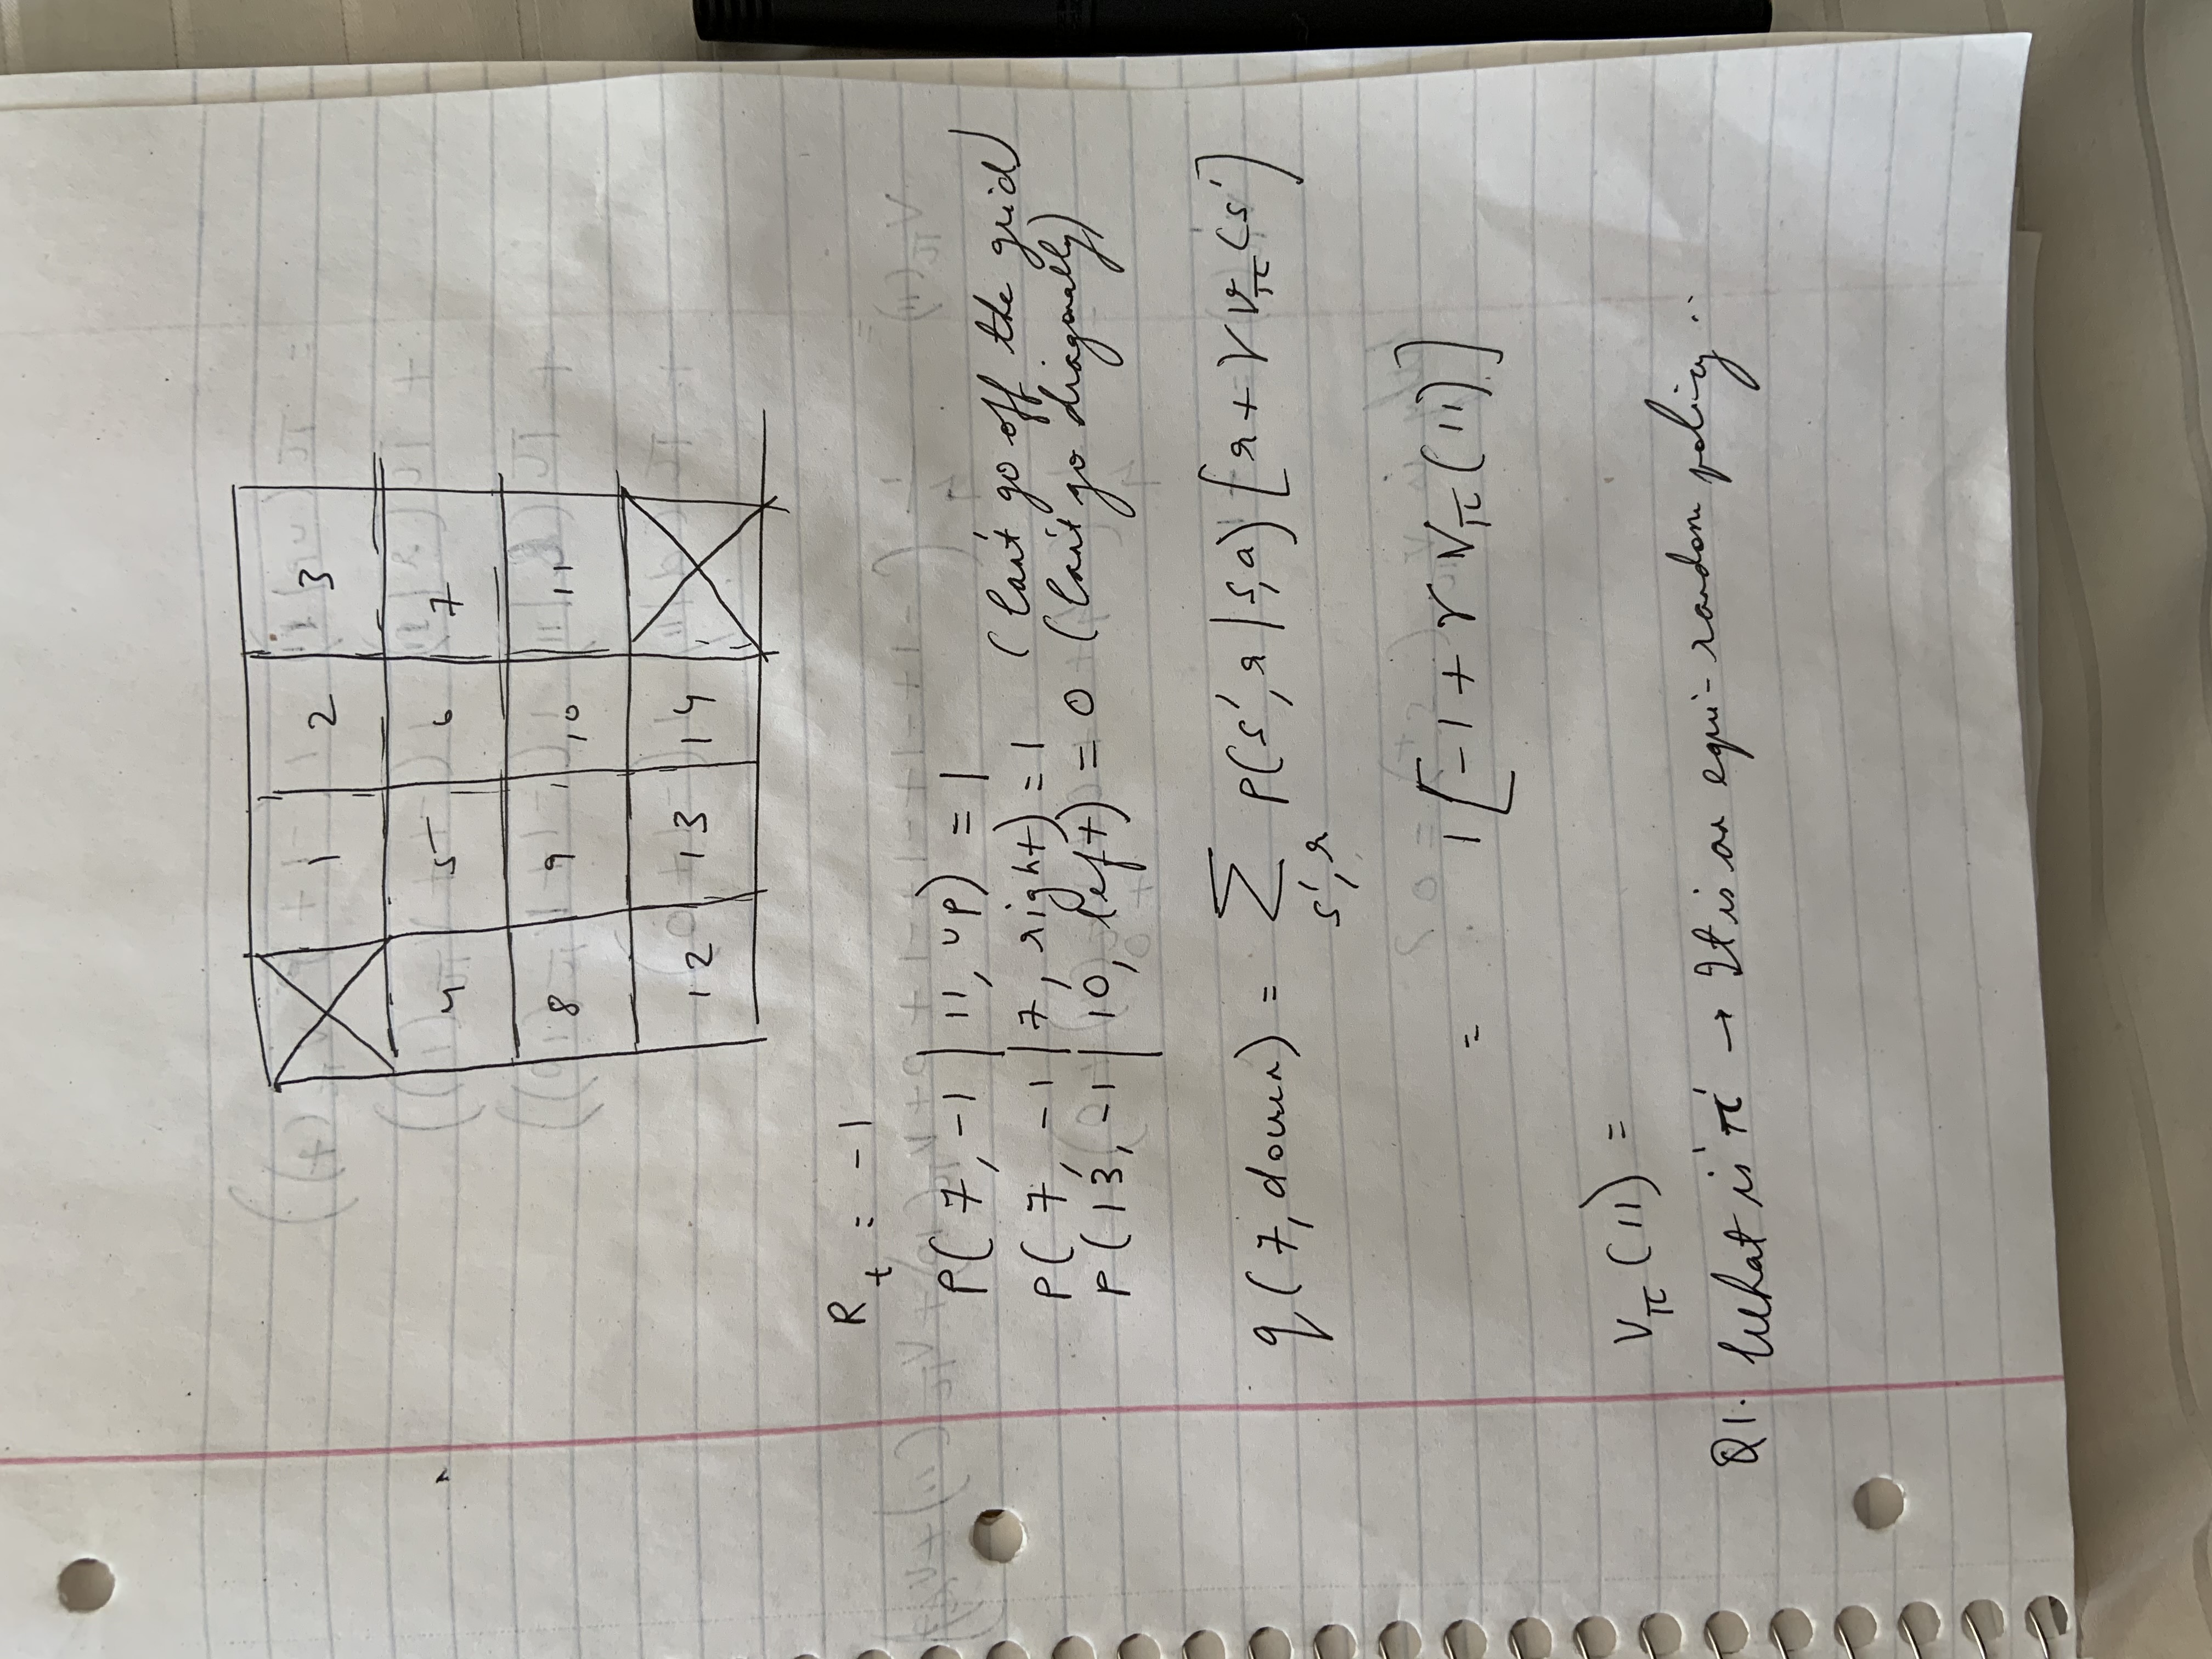 1 2 3
4 5 6 7
8 9 10 11
12 13 14
R_t = -1
p(7, -1 | 11, up) = 1
p(7, -1 | 7, right) = 1 (Can't go off the grid)
p(13, -1 | 10, left) = 0 (Can't go diagonally)
q(7, down) = Σ_{s', r} p(s', r | s, a) [r + γ v_π(s']
= 1[-1 + γ V_π(11)]
V_π(11) =
Q1. What is 'π' → It is an equi-random policy..